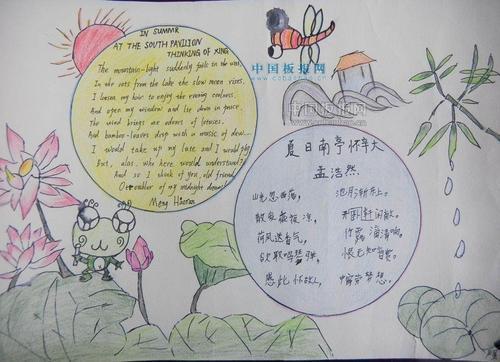 IN SUMMR
AT THE SOUTH PAVILION
THINKING OF XING
The mountain-light suddenly fails in the west,
In the east from the lake the slow moon rises.
I loosen my hair to enjoy the evening coolness
And open my window and lie down in peace.
The wind brings me odours of lotuses,
And bamboo-leaves drip with a music of dew....
I would take up my lute and I would play,
But, alas, who here would understand?
And so I think of you, old friend,
O troubler of my midnight dreams!
Meng Haoran
中国板报网
中国板报网
夏日南亭怀辛大
孟浩然
山光忽西落, 池月渐东上。
散发乘夜凉, 开轩卧闲敞。
荷风送香气, 竹露滴清响。
欲取鸣琴弹, 恨无知音赏。
感此怀故人, 中宵劳梦想。